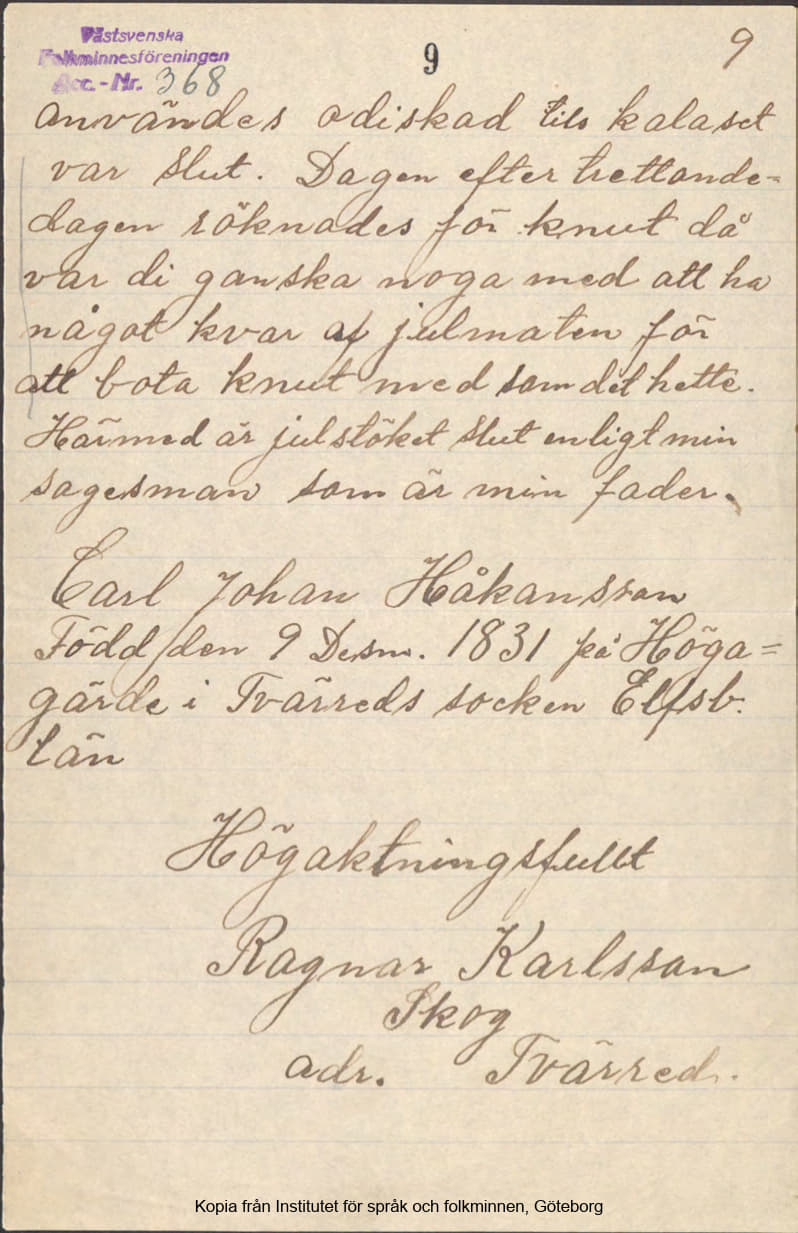 Västsvenska
Folkminnesföreningen
Acc.-Nr. 368
9
9
användes odiskad tils kalaset
var slut. Dagen efter trettonde=
dagen röknades för knut då
var di ganska noga med att ha
något kvar af julmaten för
att bota knut med som det hette.
Härmed är julstöket slut enligt min
sagesman som är min fader.
Carl Johan Håkansson
Född den 9 Desm. 1831 på Höga=
gärde i Tvärreds socken Elfsb.
län
Högaktningsfullt
Ragnar Karlsson
Skog
adr. Tvärred.
Kopia från Institutet för språk och folkminnen, Göteborg